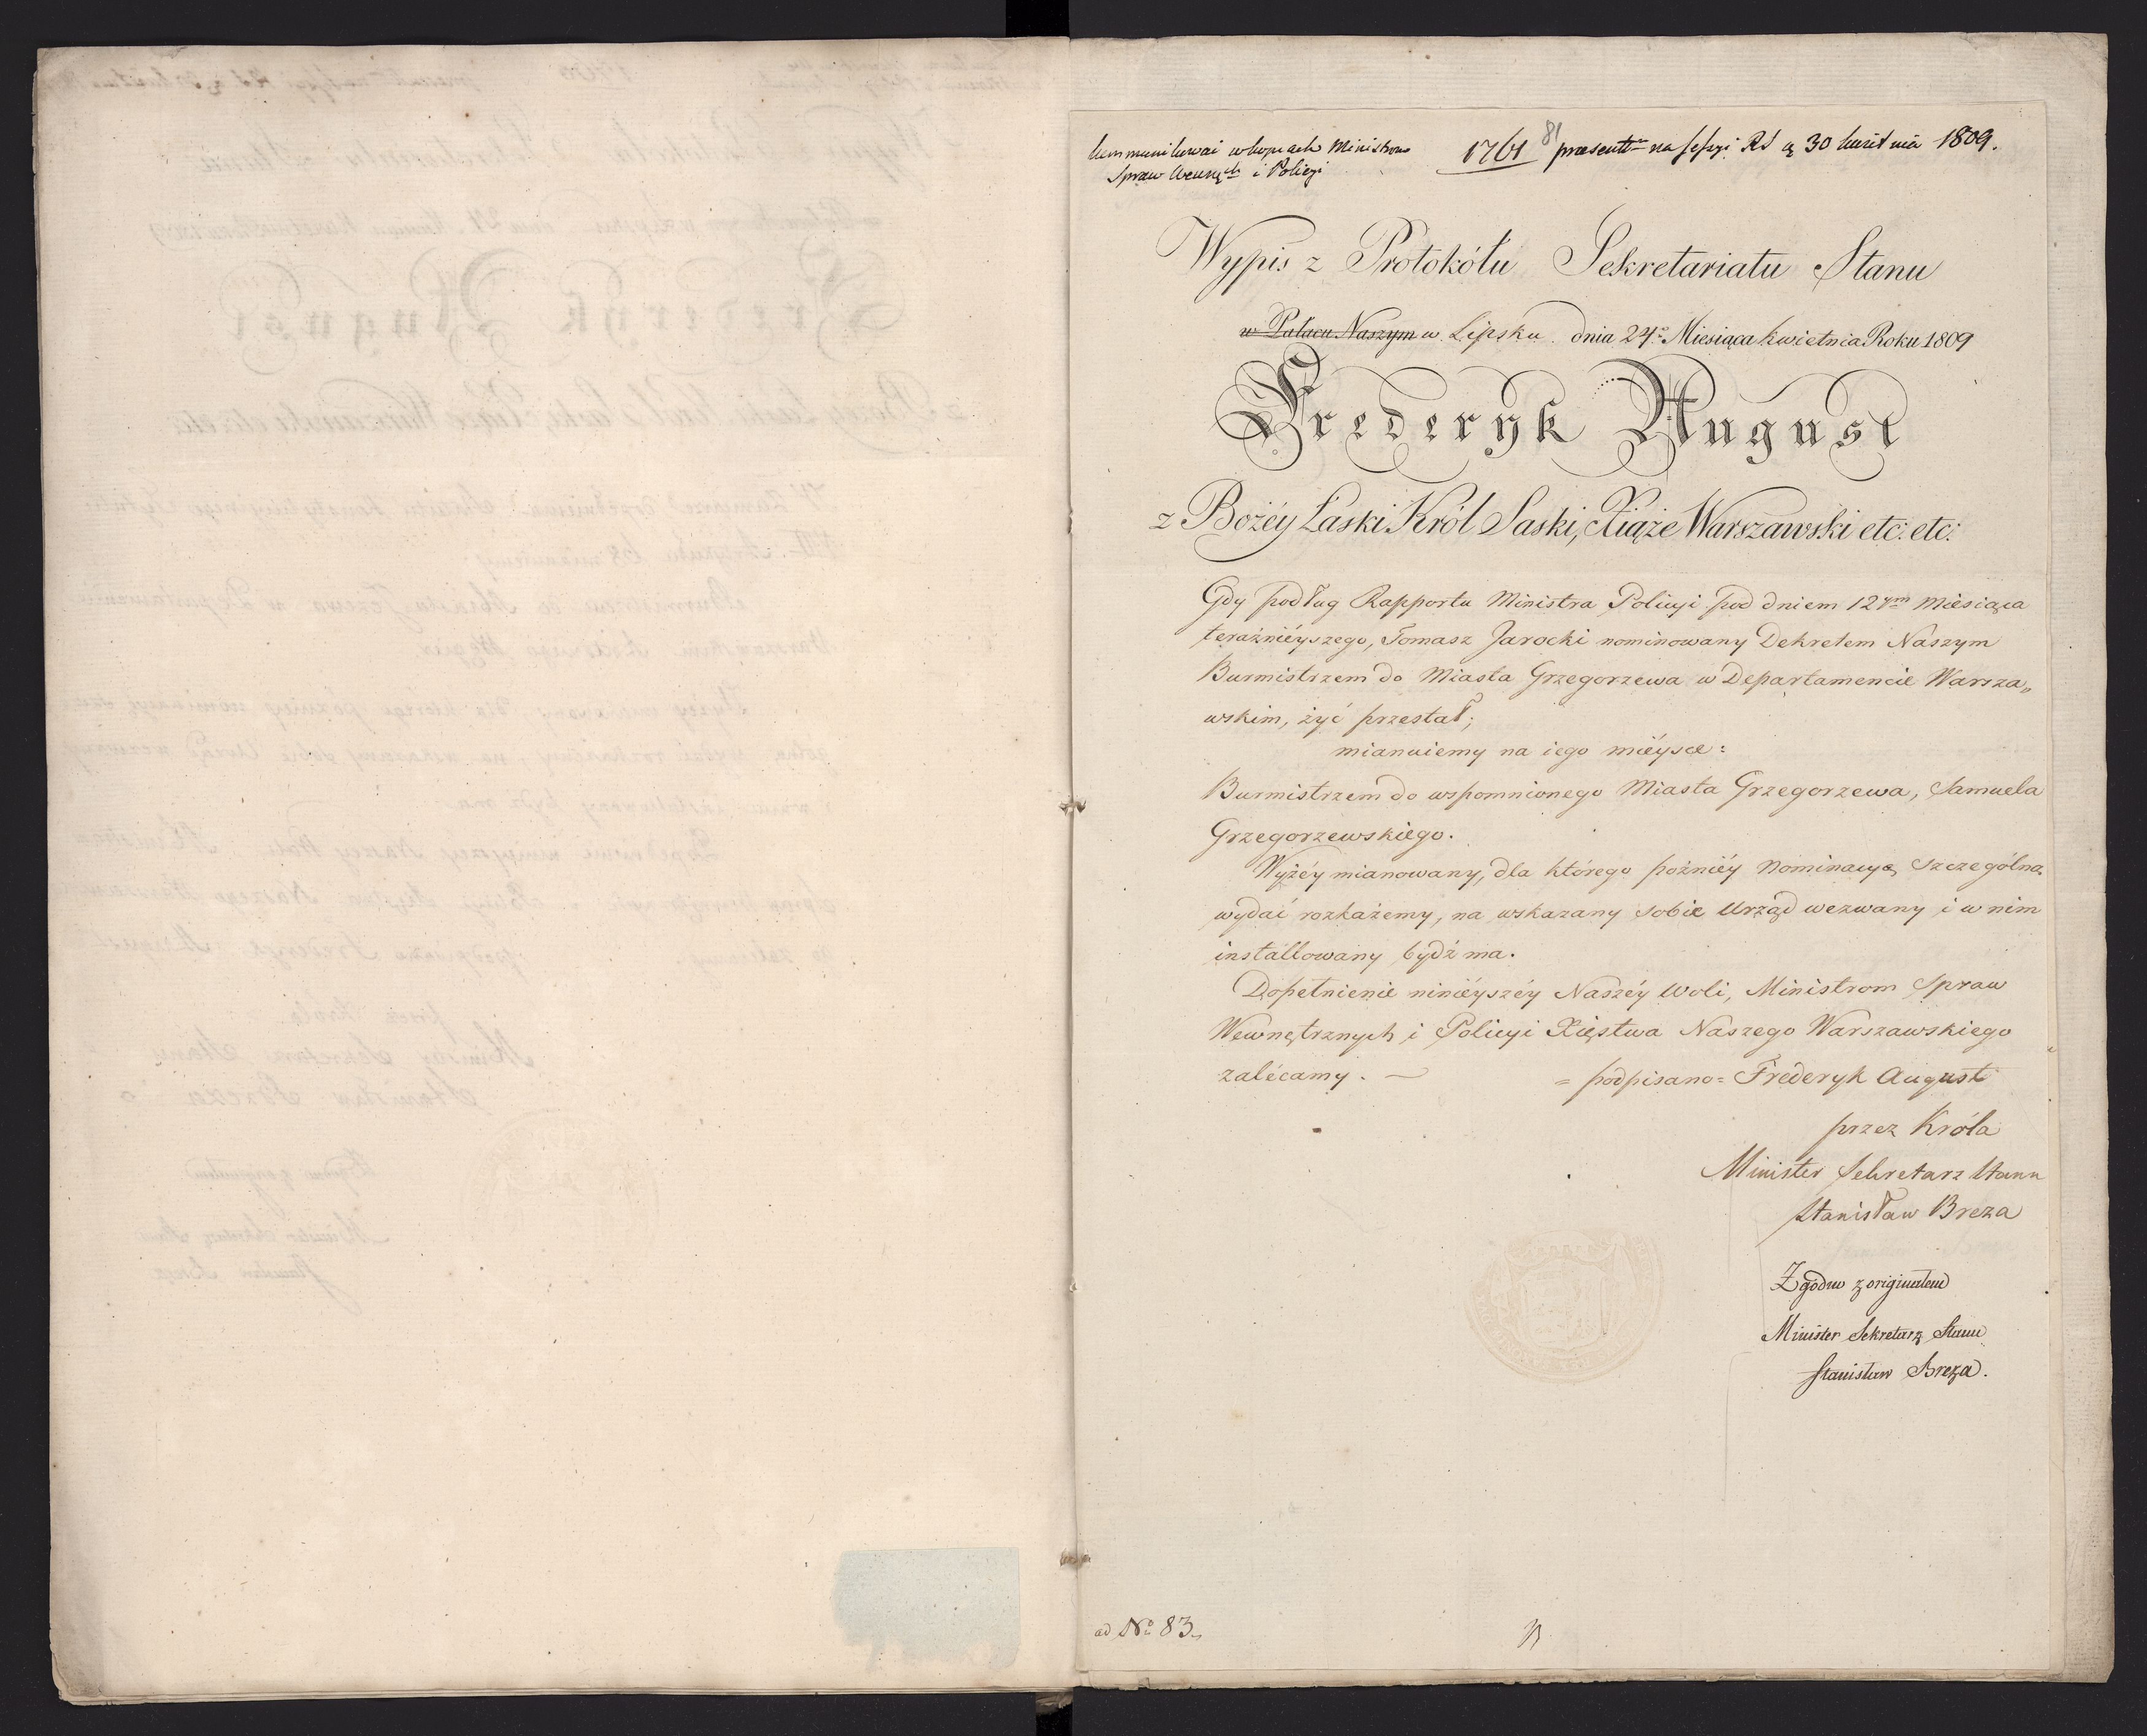 kommunikować w kopiach Ministrom
Spraw Wewnęch i Policyi
1761
81
praesentm na sessyi RS ą 30 kwietnia 1809.
Wypis z Protokółu Sekretariatu Stanu
w Pałacu Naszym w Lipsku dnia 24o Miesiąca kwietnia Roku 1809
Frederyk August
z Bożéy Łaski Król Saski, Xiąże Warszawski etc: etc:
Gdy podług Rapportu Ministra Policyi pod dniem 12ym miesiąca
teraźniéyszego, Tomasz Jarocki nominowany Dekretem Naszym
Burmistrzem do Miasta Grzegorzewa w Departamencie Warsza„
wskim, żyć przestał;
mianuiemy na iego miéysce:
Burmistrzem do wspomnionego Miasta Grzegorzewa, Samuela
Grzegorzewskiego.
Wyżéy mianowany, dla którego poźniéy Nominacyą szczególną
wydać rozkażemy, na wskazany sobie Urząd wezwany i w nim
installowany bydź ma.
Dopełnienie niniéyszéy Naszéy Woli, Ministrom Spraw
Wewnętrznych i Policyi Xięstwa Naszego Warszawskiego
zalécamy. — = podpisano = Frederyk August
przez Króla
Minister Sekretarz Stanu
Stanisław Breza
Zgodno z originałem
Minister Sekretarz Stanu
Stanisław Breza.
ad No 83.